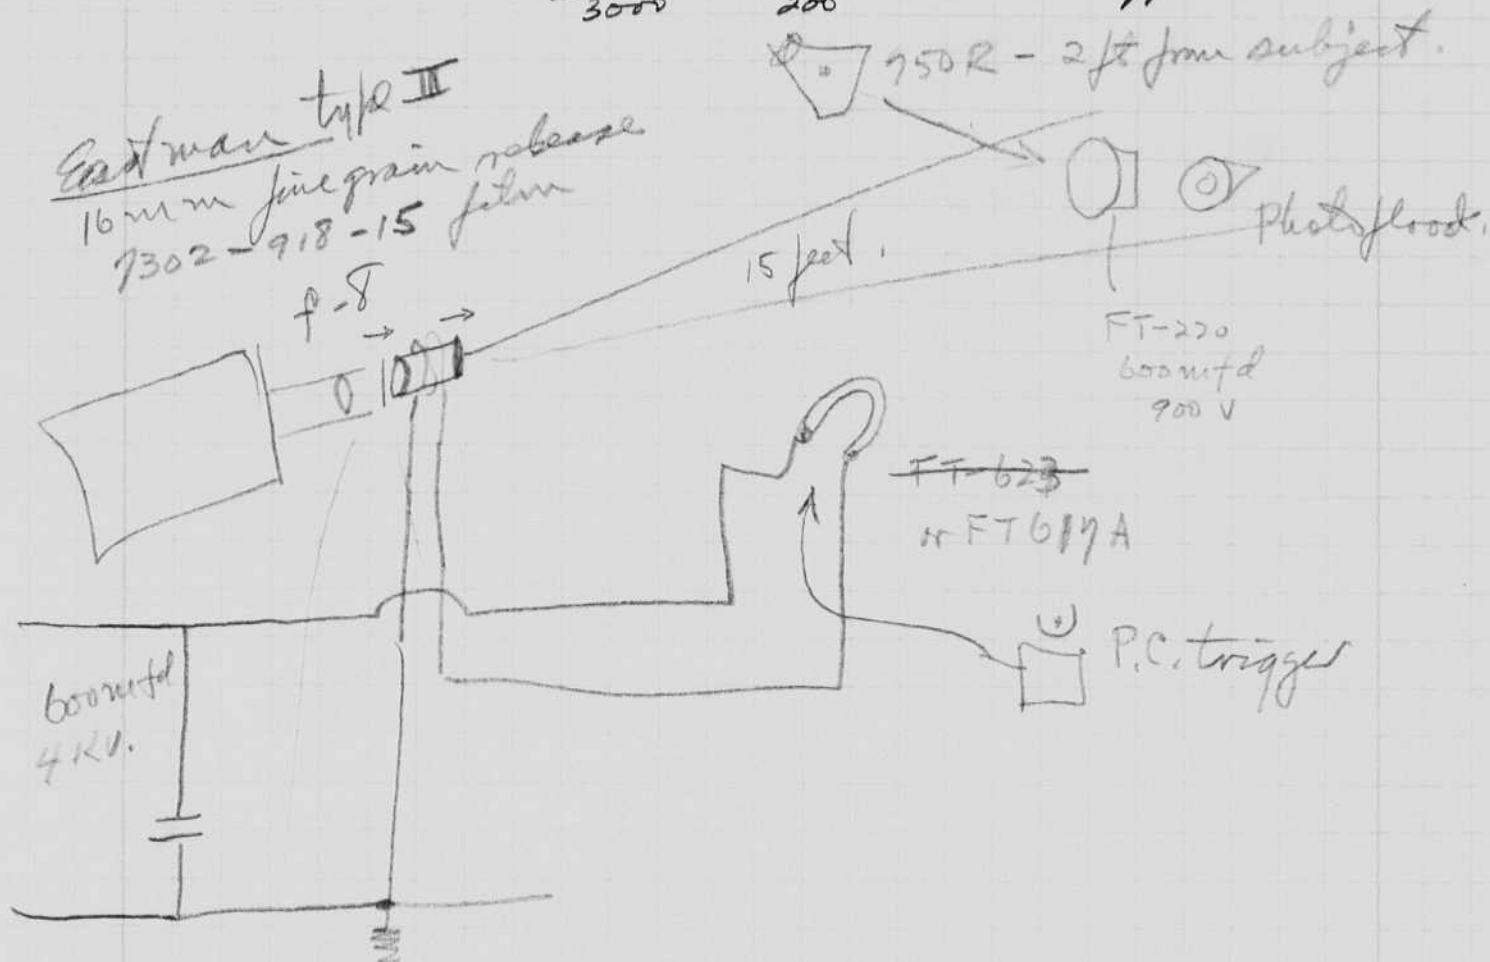 3000 200
950R - 2 ft from subject.
Eastman type III
16 mm fine grain release
7302-918-15 film
Photoflood.
15 feet.
f-8
FT-220
600 mfd
900 V
FT-623
or FT617A
P.C. trigger
600 mfd
4 KV.